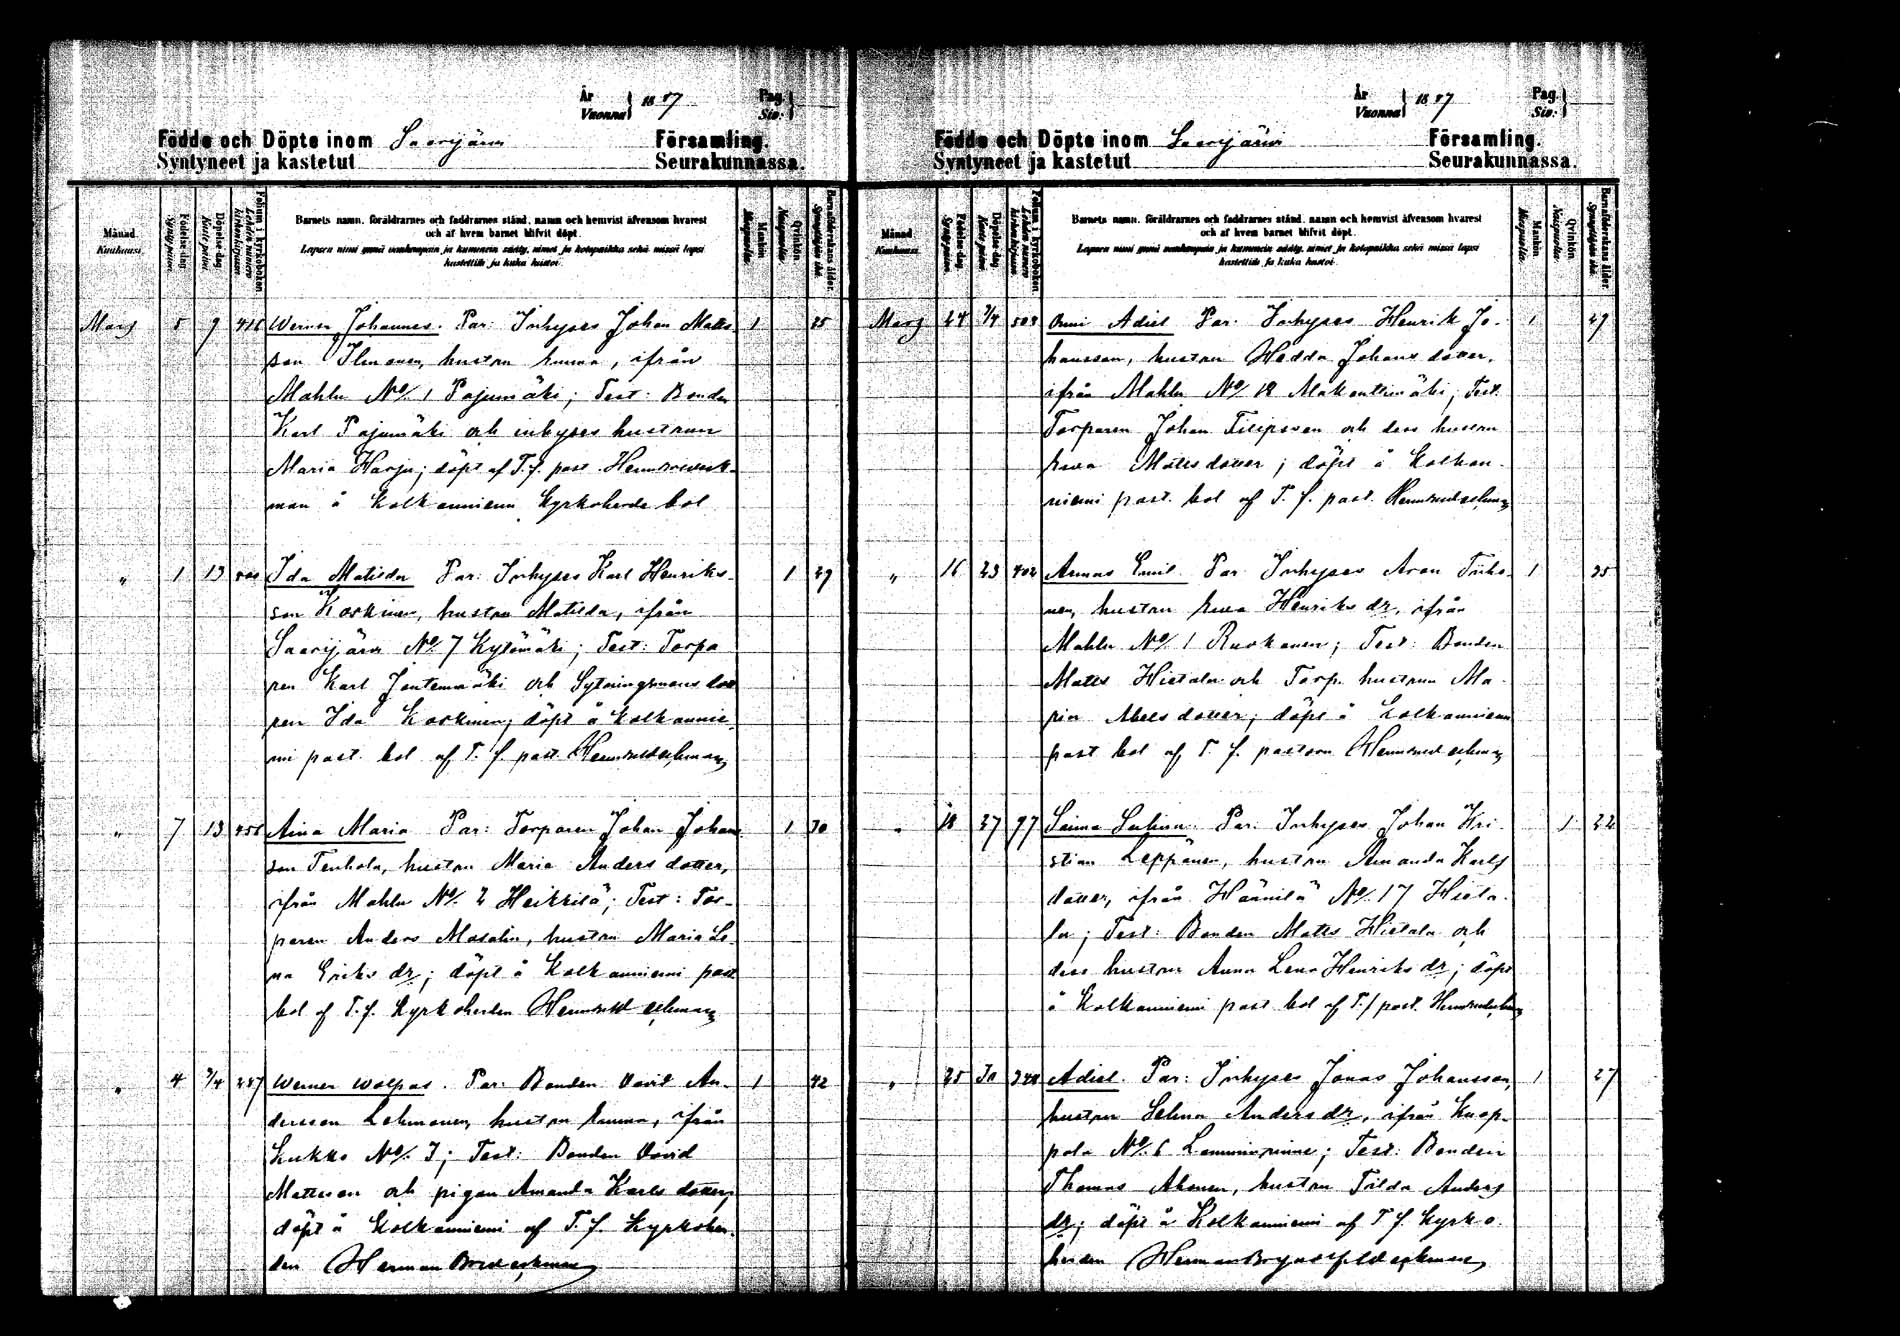 År
Vuonna } 1887
Pag.
Siv. }
Födde och Döpte inom Saarijärvi Församling.
Syntyneet ja kastetut Seurakunnassa.
Månad.
Kuukausi.
Födelse-dag.
Synty-päivä.
Döpelse-dag.
Kaste-päivä.
Folium i kyrkoboken.
Lehden numero kirkonkirjassa.
Barnets namn, föräldrarnes och faddrarnes stånd, namn och hemvist äfvensom hvarest
och af hvem barnet blifvit döpt.
Lapsen nimi sekä vanhempain ja kummein sääty, nimet ja kotopaikka sekä missä lapsi
kastettiin ja kuka kastoi.
Mankön.
Miespuolia.
Qvinkön.
Naispuolia.
Barnaföderskans ålder.
Synnyttäjän ikä.
Mars 5 9 416 Werner Johannes. Par: Inhyses Johan Matts 1 25
son Ilmonen, hustru Emma, ifrån
Mahlu No/. 1 Pajumäki; Test: Bonden
Karl Pajumäki och inhyses hustrun
Maria Harju; döpt af T. f. past.
man å Kolkanniemi Kyrkoherde bol
" 1 13 Ida Matilda Par: Inhyses Karl Henriks- 1 29
son Koskinen, hustru Matilda, ifrån
Saarijärvi No/. 7 Kytömäki; Test: Torpa
ren Karl Jentemäki och Sytningsmans dot
ren Ida Koskinen; döpt å Kolkannie
mi past. bol af T. f. past.
" 7 13 456 Aina Maria Par: Torparen Johan Johans 1 30
son Tenhola, hustru Maria Anders dotter,
ifrån Mahlu No/. 2 Heikkilä; Test: Tor-
paren Anders Masalin, hustru Maria Le
na Eriks dr; döpt å Kolkanniemi past
bol af T. f. Kyrkoherden
" 4 3/4 287 Werner Wolpas. Par: Bonden David An- 1 42
dersson Lehmonen, hustru Emma, ifrån
Kukko No/. 3; Test: Bonden David
Mattsson och pigan Amanda Karls dotter;
döpt å Kolkanniemi af T. f. Kyrkoher-
den Herman
År
Vuonna } 1887
Pag.
Siv. }
Födde och Döpte inom Saarijärvi Församling.
Syntyneet ja kastetut Seurakunnassa.
Månad.
Kuukausi.
Födelse-dag.
Synty-päivä.
Döpelse-dag.
Kaste-päivä.
Folium i kyrkoboken.
Lehden numero kirkonkirjassa.
Barnets namn, föräldrarnes och faddrarnes stånd, namn och hemvist äfvensom hvarest
och af hvem barnet blifvit döpt.
Lapsen nimi sekä vanhempain ja kummein sääty, nimet ja kotopaikka sekä missä lapsi
kastettiin ja kuka kastoi.
Mankön.
Miespuolia.
Qvinkön.
Naispuolia.
Barnaföderskans ålder.
Synnyttäjän ikä.
Mars 24 3/4 Onni Adiel Par: Inhyses Henrik Jo- 1 29
hansson, hustru Hedda Johans dotter,
ifrån Mahlu No/. 12; Test:
Torparen Johan Filipsson och dess hustru
Eva Matts dotter; döpt å Kolkan-
niemi past. bol af T. f. past.
" 16 23 402 Armas Emil. Par Inhyses Aron Tiiho- 1 35
nen, hustru Eva Henriks dr, ifrån
Mahlu No/. 1 Ruokanen; Test: Bonden
Matts Hietala och Torp. hustrun Ma-
ria Abels dotter; döpt å Kolkanniemi
past bol af T. f. pastorn
" 18 27 97 Saima Sabina. Par: Inhyses Johan Kri- 1 22
stian Leppänen, hustru Amanda Karls
dotter, ifrån Häänilä No/. 17 Hieta-
la; Test: Bonden Matts Hietala och
dess hustru Anna Lena Henriks dr; döpt
å Kolkanniemi past bol af T. f past.
" 25 30 Adiel. Par: Inhyses Jonas Johansson, 1 27
hustru Selma Anders dr, ifrån Knop-
pola No/. 6; Test: Bonden
Thomas Ahonen, hustru Tilda Anders
dr; döpt å Kolkanniemi af T f. Kyrko-
herden Herman